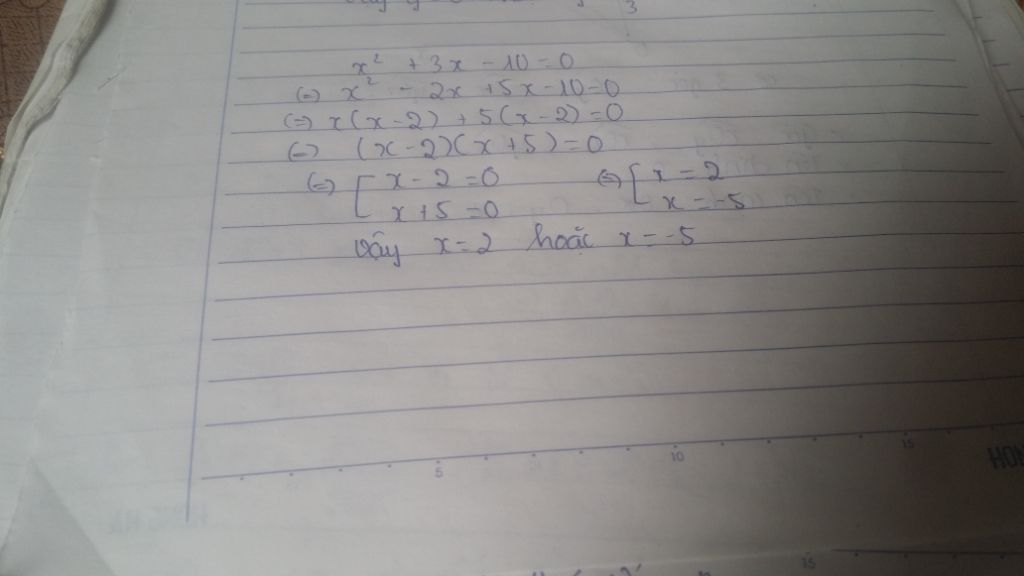 3
x² + 3x - 10 = 0
(=) x² - 2x + 5x - 10 = 0
(=) x(x - 2) + 5(x - 2) = 0
(=) (x - 2)(x + 5) = 0
(=) [ x - 2 = 0 (=) [ x = 2
x + 5 = 0 x = -5
Vậy x = 2 hoặc x = -5
5 10 15
HON
15